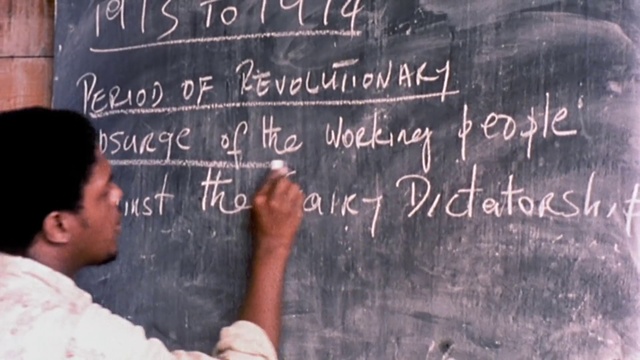 1973 TO 1974
PERIOD OF REVOLUTIONARY
psurge of the working people
inst the airy Dictatorship